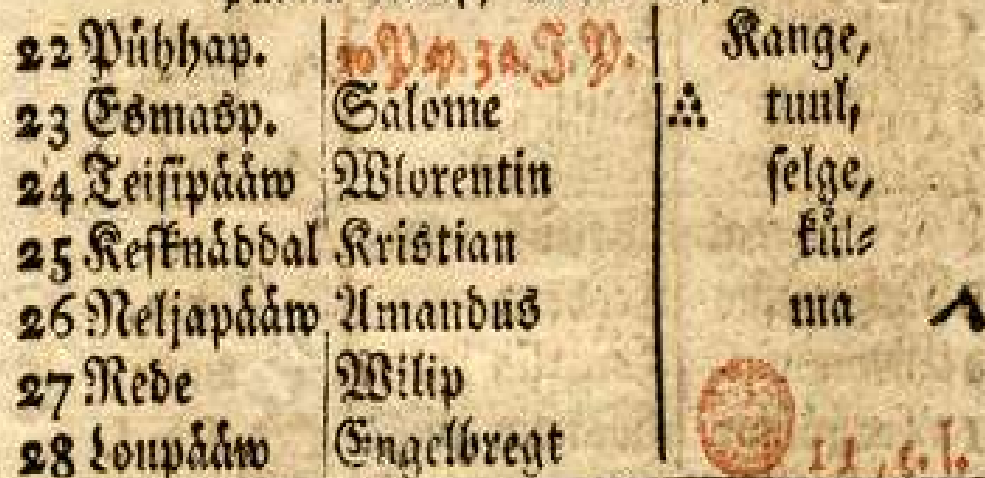 22 Pühhap. 20 P. p. 3 k. J. P. Kange,
23 Esmasp. Salome tuul,
24 Teisipååw Wlorentin selge,
25 Kesknåddal Kristian kül=
26 Neljapååw Amandus ma
27 Rede Wilip
28 Loupååw Engelbregt 11, e. l.